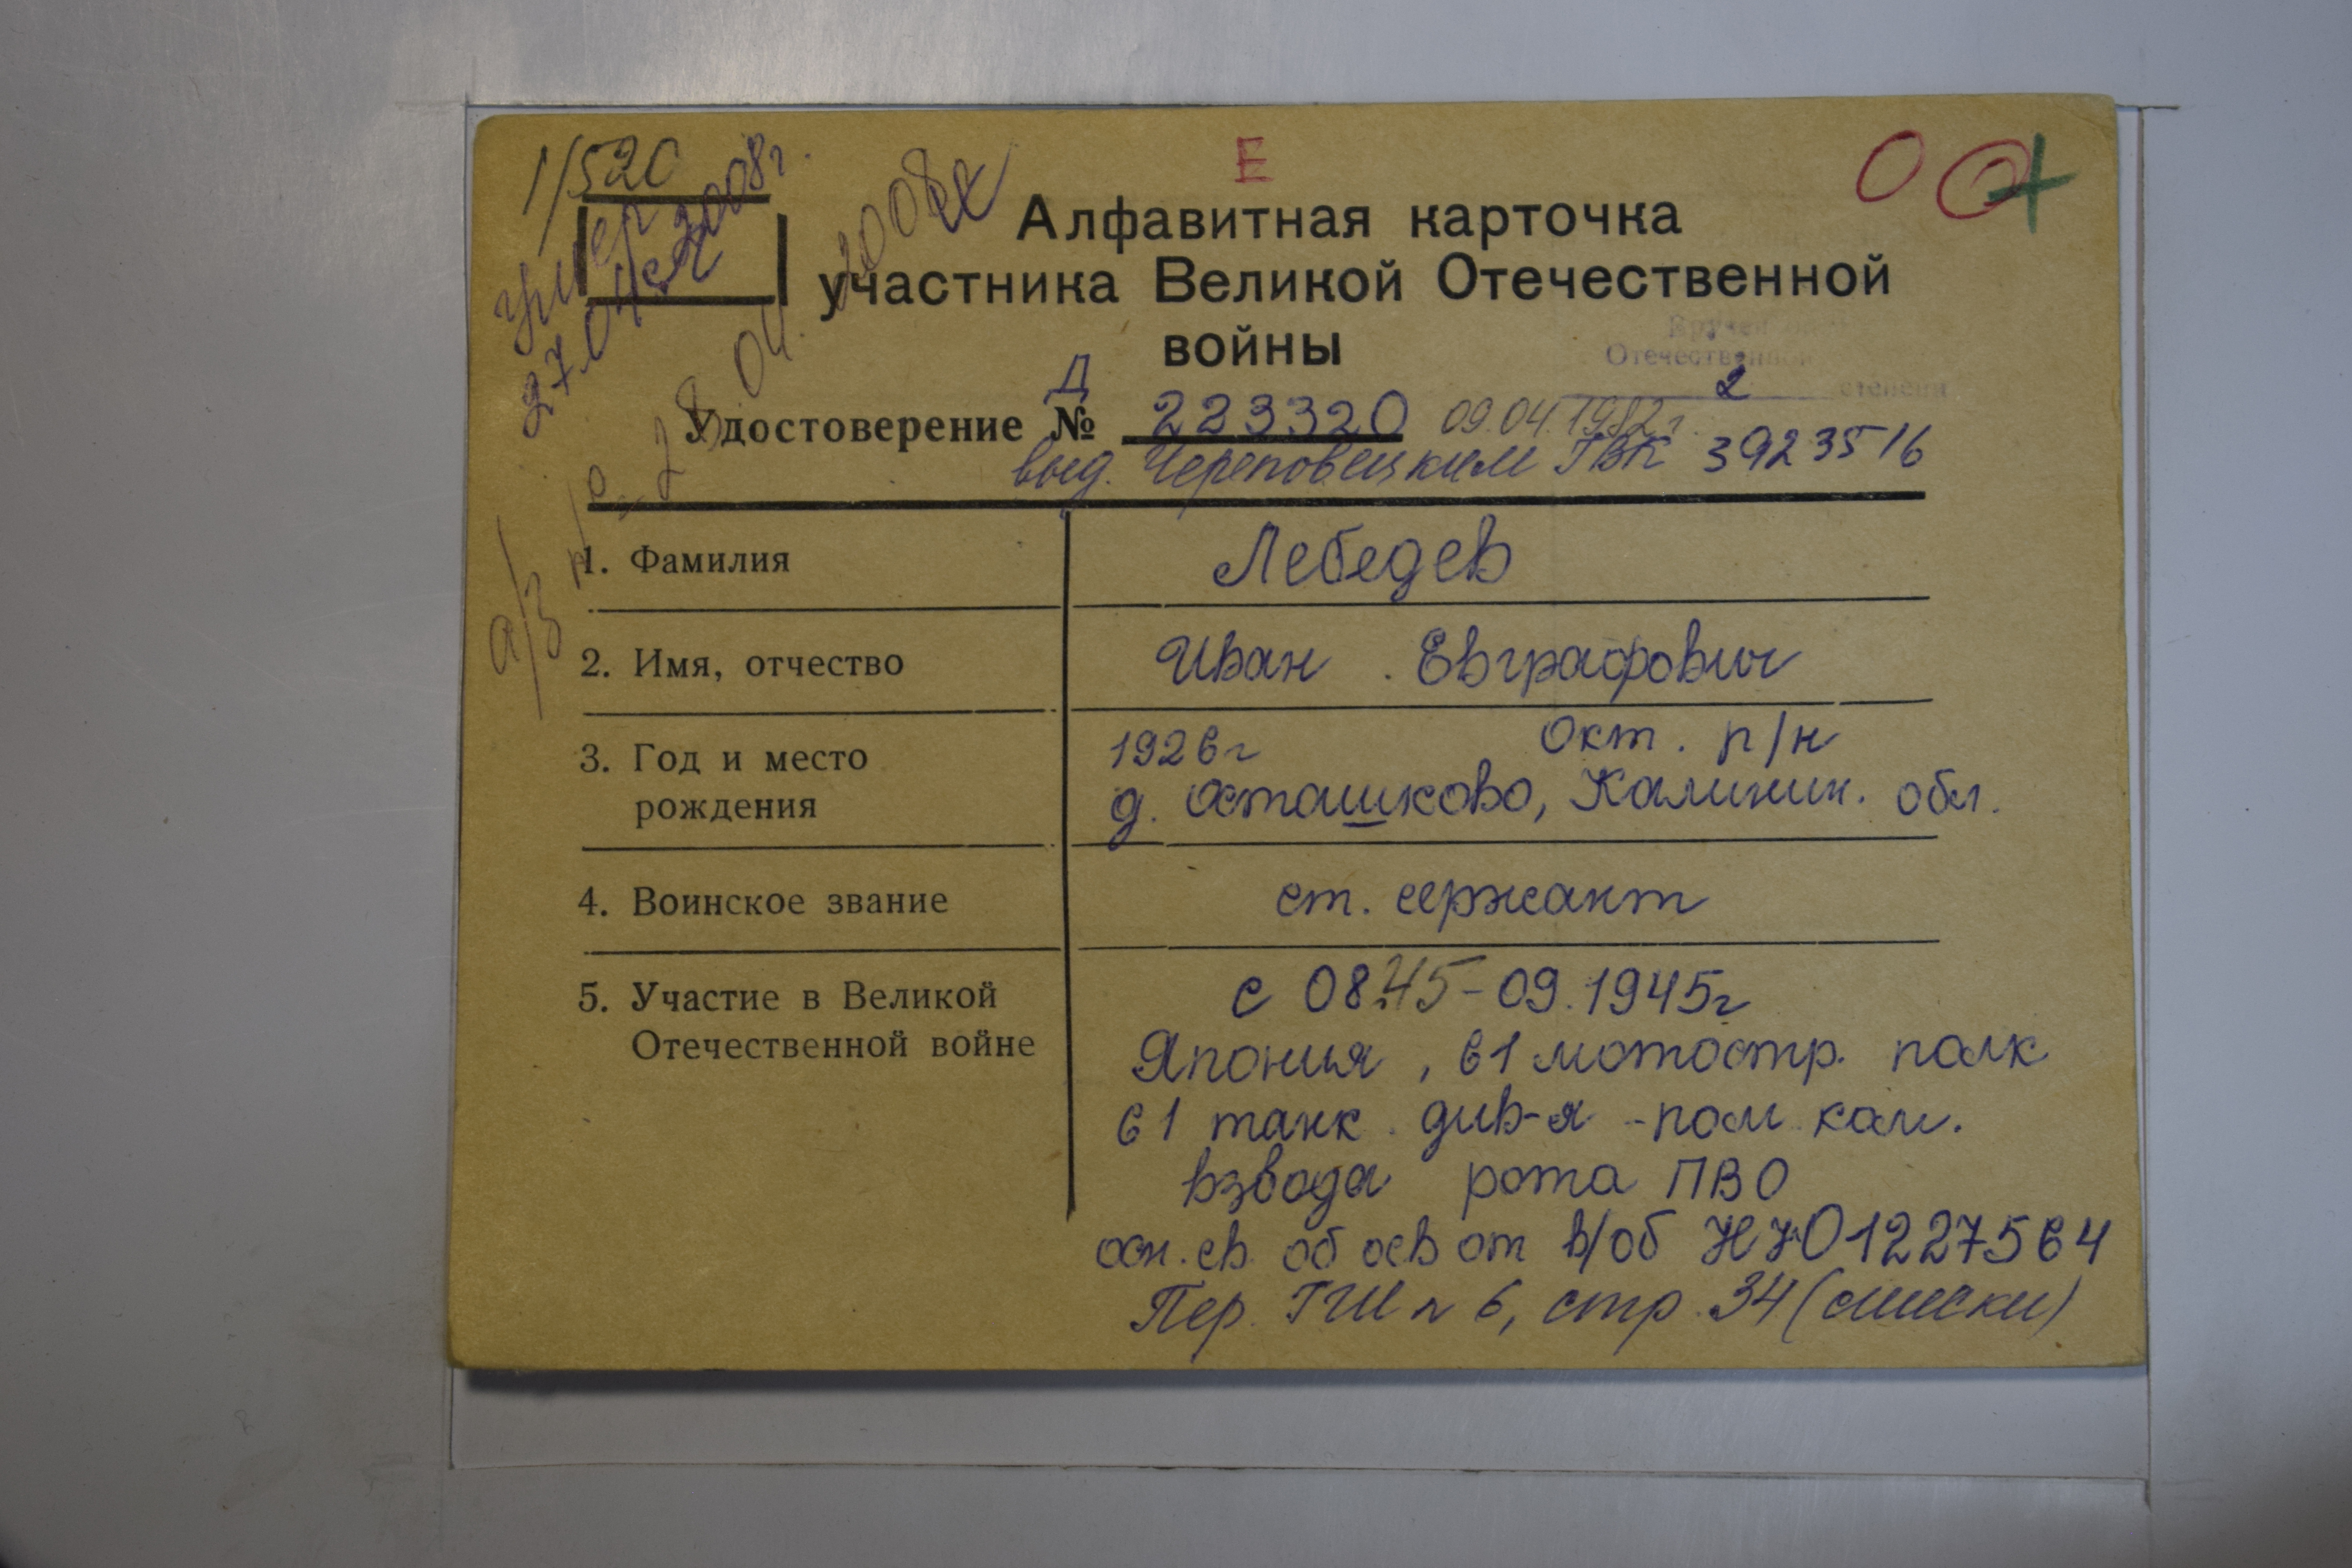 1/520
умер
27.04.2008г.
Е
Алфавитная карточка
участника Великой Отечественной
войны
Вручен
Отечественной
2 степени
Д
Удостоверение № 223320 09.04.1982г.
выд. Череповецким ГВК 3923516
а/з № 28.04.2008г
1. Фамилия Лебедев
2. Имя, отчество Иван Евграфович
3. Год и место 1926г Окт. р/н
рождения д. Осташково, Калинин. обл.
4. Воинское звание ст. сержант
5. Участие в Великой с 08.45-09.1945г
Отечественной войне Япония, 61 мотостр. полк
61 танк. див-я - пом. ком.
взвода рота ПВО
осн. св. об осв от в/об
Пер. ГШ № 6, стр. 34 (списки)